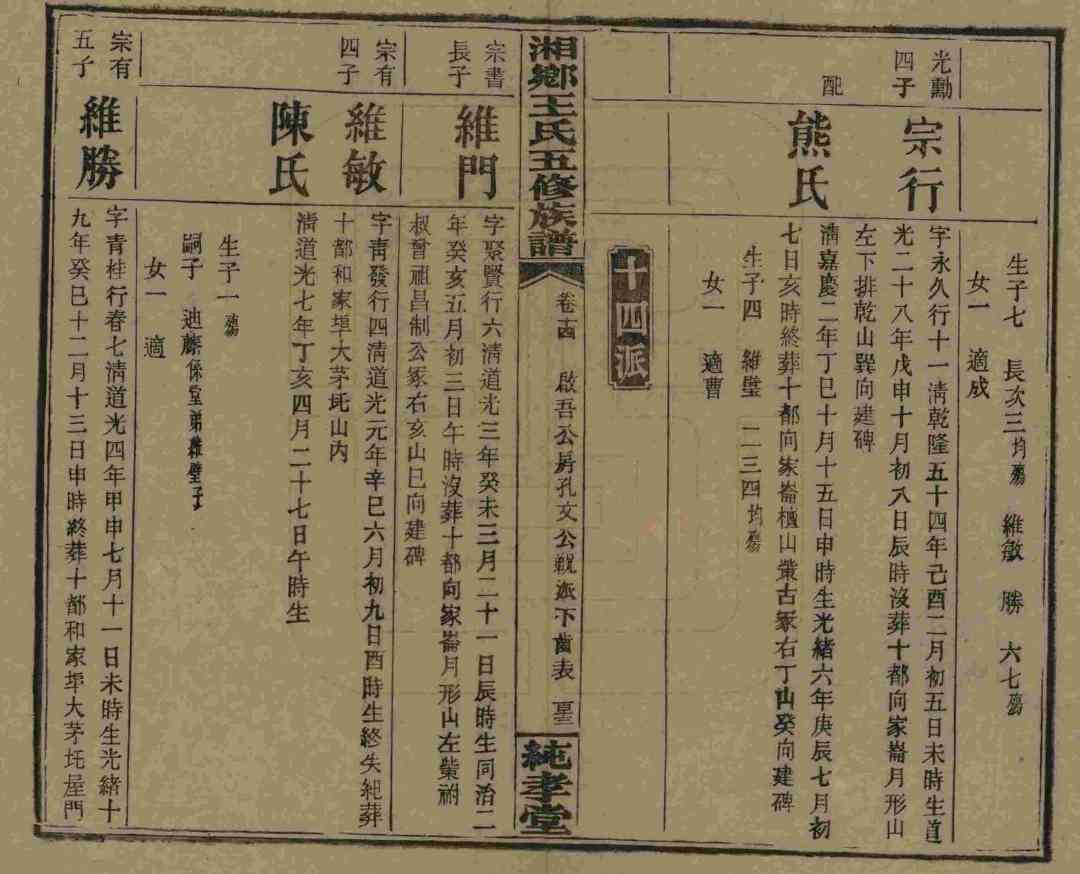 生子七 長次三均殤 維敏 勝 六七殤
女一 適成
光勳
四子
宗行
字永久行十一清乾隆五十四年己酉二月初五日未時生道
光二十八年戊申十月初八日辰時沒葬十都向家崙月形山
左下排乾山巽向建碑
配
熊氏
清嘉慶二年丁巳十月十五日申時生光緒六年庚辰七月初
七日亥時終葬十都向家崙檀山叢古冢右丁山癸向建碑
生子四 維璧 二三四均殤
女一 適曹
十四派
湘鄉王氏五修族譜
卷十四 啟吾公房孔文公觀派下齒表
純孝堂
宗書
長子
維門
字聚賢行六清道光三年癸未三月二十一日辰時生同治二
年癸亥五月初三日午時沒葬十都向家崙月形山左塋祔
叔曾祖昌制公冢右亥山巳向建碑
宗有
四子
維敏
字靑發行四清道光元年辛巳六月初九日酉時生終失紀葬
十都和家埠大茅坵山内
陳氏
清道光七年丁亥四月二十七日午時生
生子一殤
嗣子 迪 係堂弟維璧子
女一 適
宗有
五子
維勝
字青桂行春七清道光四年甲申七月十一日未時生光緒十
九年癸巳十二月十三日申時終葬十都和家埠大茅坵屋門